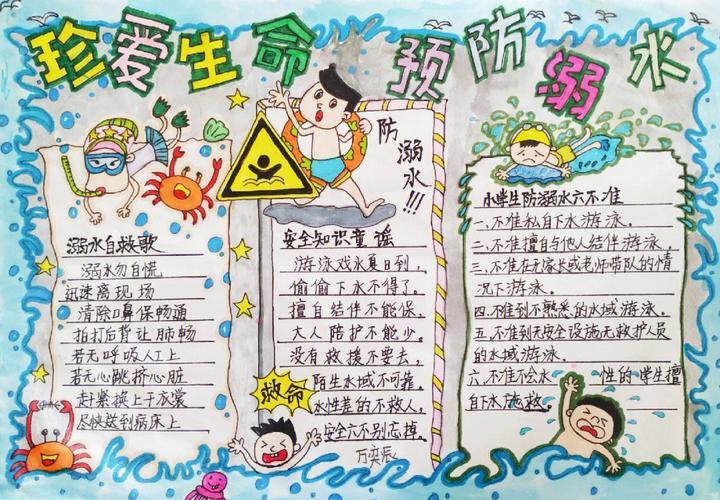 珍爱生命 预防溺水
溺水自救歌
溺水勿自慌
迅速离现场
清除口鼻保畅通
拍打后背让肺畅
若无呼吸人工上
若无心跳挤心脏
赶紧换上干衣裳
尽快送到病床上
防溺水!!!
安全知识童谣
游泳戏水夏日到，
偷偷下水不得了。
擅自结伴不能保，
大人陪护不能少。
没有救援不要去，
陌生水域不可靠。
水性差的不救人，
安全六不别忘掉。
万奕辰
救命
小学生防溺水六不准
一、不准私自下水游泳。
二、不准擅自与他人结伴游泳。
三、不准在无家长或老师带队的情
况下游泳。
四、不准到不熟悉的水域游泳。
五、不准到无安全设施、无救护人员
的水域游泳。
六、不准不会水 性的学生擅
自下水施救。